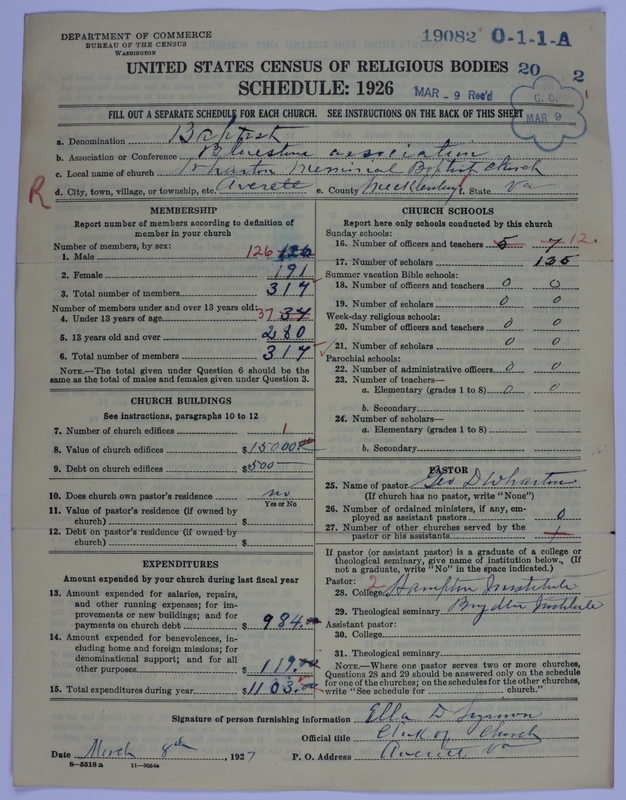 DEPARTMENT OF COMMERCE
BUREAU OF THE CENSUS
WASHINGTON
19082 0-1-1-A
UNITED STATES CENSUS OF RELIGIOUS BODIES 20 2
SCHEDULE: 1926
MAR - 9 Rec'd
C. C.
MAR 9
FILL OUT A SEPARATE SCHEDULE FOR EACH CHURCH. SEE INSTRUCTIONS ON THE BACK OF THIS SHEET
a. Denomination Baptist
b. Association or Conference Bluestone association
c. Local name of church Wharton Memorial Baptist Church
R
d. City, town, village, or township, etc. Averett e. County Mecklenburg f. State Va
MEMBERSHIP
Report number of members according to definition of
member in your church
Number of members, by sex:
1. Male 126 126
2. Female 191
3. Total number of members 317
Number of members under and over 13 years old:
4. Under 13 years of age 37 34
5. 13 years old and over 280
6. Total number of members 317
NOTE.—The total given under Question 6 should be the
same as the total of males and females given under Question 3.
CHURCH BUILDINGS
See instructions, paragraphs 10 to 12
7. Number of church edifices 1
8. Value of church edifices $ 15000
9. Debt on church edifices $ 500
10. Does church own pastor's residence no
Yes or No
11. Value of pastor's residence (if owned by
church) $
12. Debt on pastor's residence (if owned by
church) $
EXPENDITURES
Amount expended by your church during last fiscal year
13. Amount expended for salaries, repairs,
and other running expenses; for im-
provements or new buildings; and for
payments on church debt $ 984.00
14. Amount expended for benevolences, in-
cluding home and foreign missions; for
denominational support; and for all
other purposes $ 119.00
15. Total expenditures during year $ 1103.00
CHURCH SCHOOLS
Report here only schools conducted by this church
Sunday schools:
16. Number of officers and teachers 5 7 12.
17. Number of scholars 135
Summer vacation Bible schools:
18. Number of officers and teachers 0 0
19. Number of scholars 0 0
Week-day religious schools:
20. Number of officers and teachers 0 0
21. Number of scholars 0 0
Parochial schools:
22. Number of administrative officers 0 0
23. Number of teachers—
a. Elementary (grades 1 to 8) 0 0
b. Secondary
24. Number of scholars—
a. Elementary (grades 1 to 8)
b. Secondary
PASTOR
25. Name of pastor Geo D Wharton
(If church has no pastor, write "None")
26. Number of ordained ministers, if any, em-
ployed as assistant pastors 0
27. Number of other churches served by the
pastor or his assistants 1
If pastor (or assistant pastor) is a graduate of a college or
theological seminary, give name of institution below. (If
not a graduate, write "No" in the space indicated.)
Pastor:
28. College 2 Hampton Institute
29. Theological seminary Institute
Assistant pastor:
30. College
31. Theological seminary
NOTE.—Where one pastor serves two or more churches,
Questions 28 and 29 should be answered only on the schedule
for one of the churches; on the schedules for the other churches,
write "See schedule for church."
Signature of person furnishing information Ella D
Official title Clerk of Church
Date March 8th, 1927 P. O. Address Averett Va
8-5518a 11-9054a